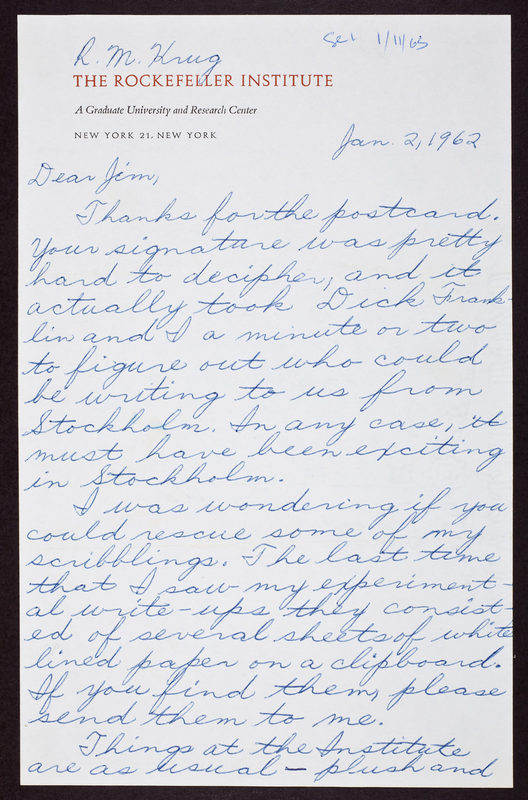 R. M. Krug
THE ROCKEFELLER INSTITUTE
A Graduate University and Research Center
NEW YORK 21, NEW YORK
1/11/63
Jan. 2, 1962
Dear Jim,
Thanks for the postcard.
Your signature was pretty
hard to decipher, and it
actually took Dick Frank-
lin and I a minute or two
to figure out who could
be writing to us from
Stockholm. In any case, it
must have been exciting
in Stockholm.
I was wondering if you
could rescue some of my
scribblings. The last time
that I saw my experiment-
al write-ups they consist-
ed of several sheets of white
lined paper on a clipboard.
If you find them, please
send them to me.
Things at the Institute
are as usual — plush and